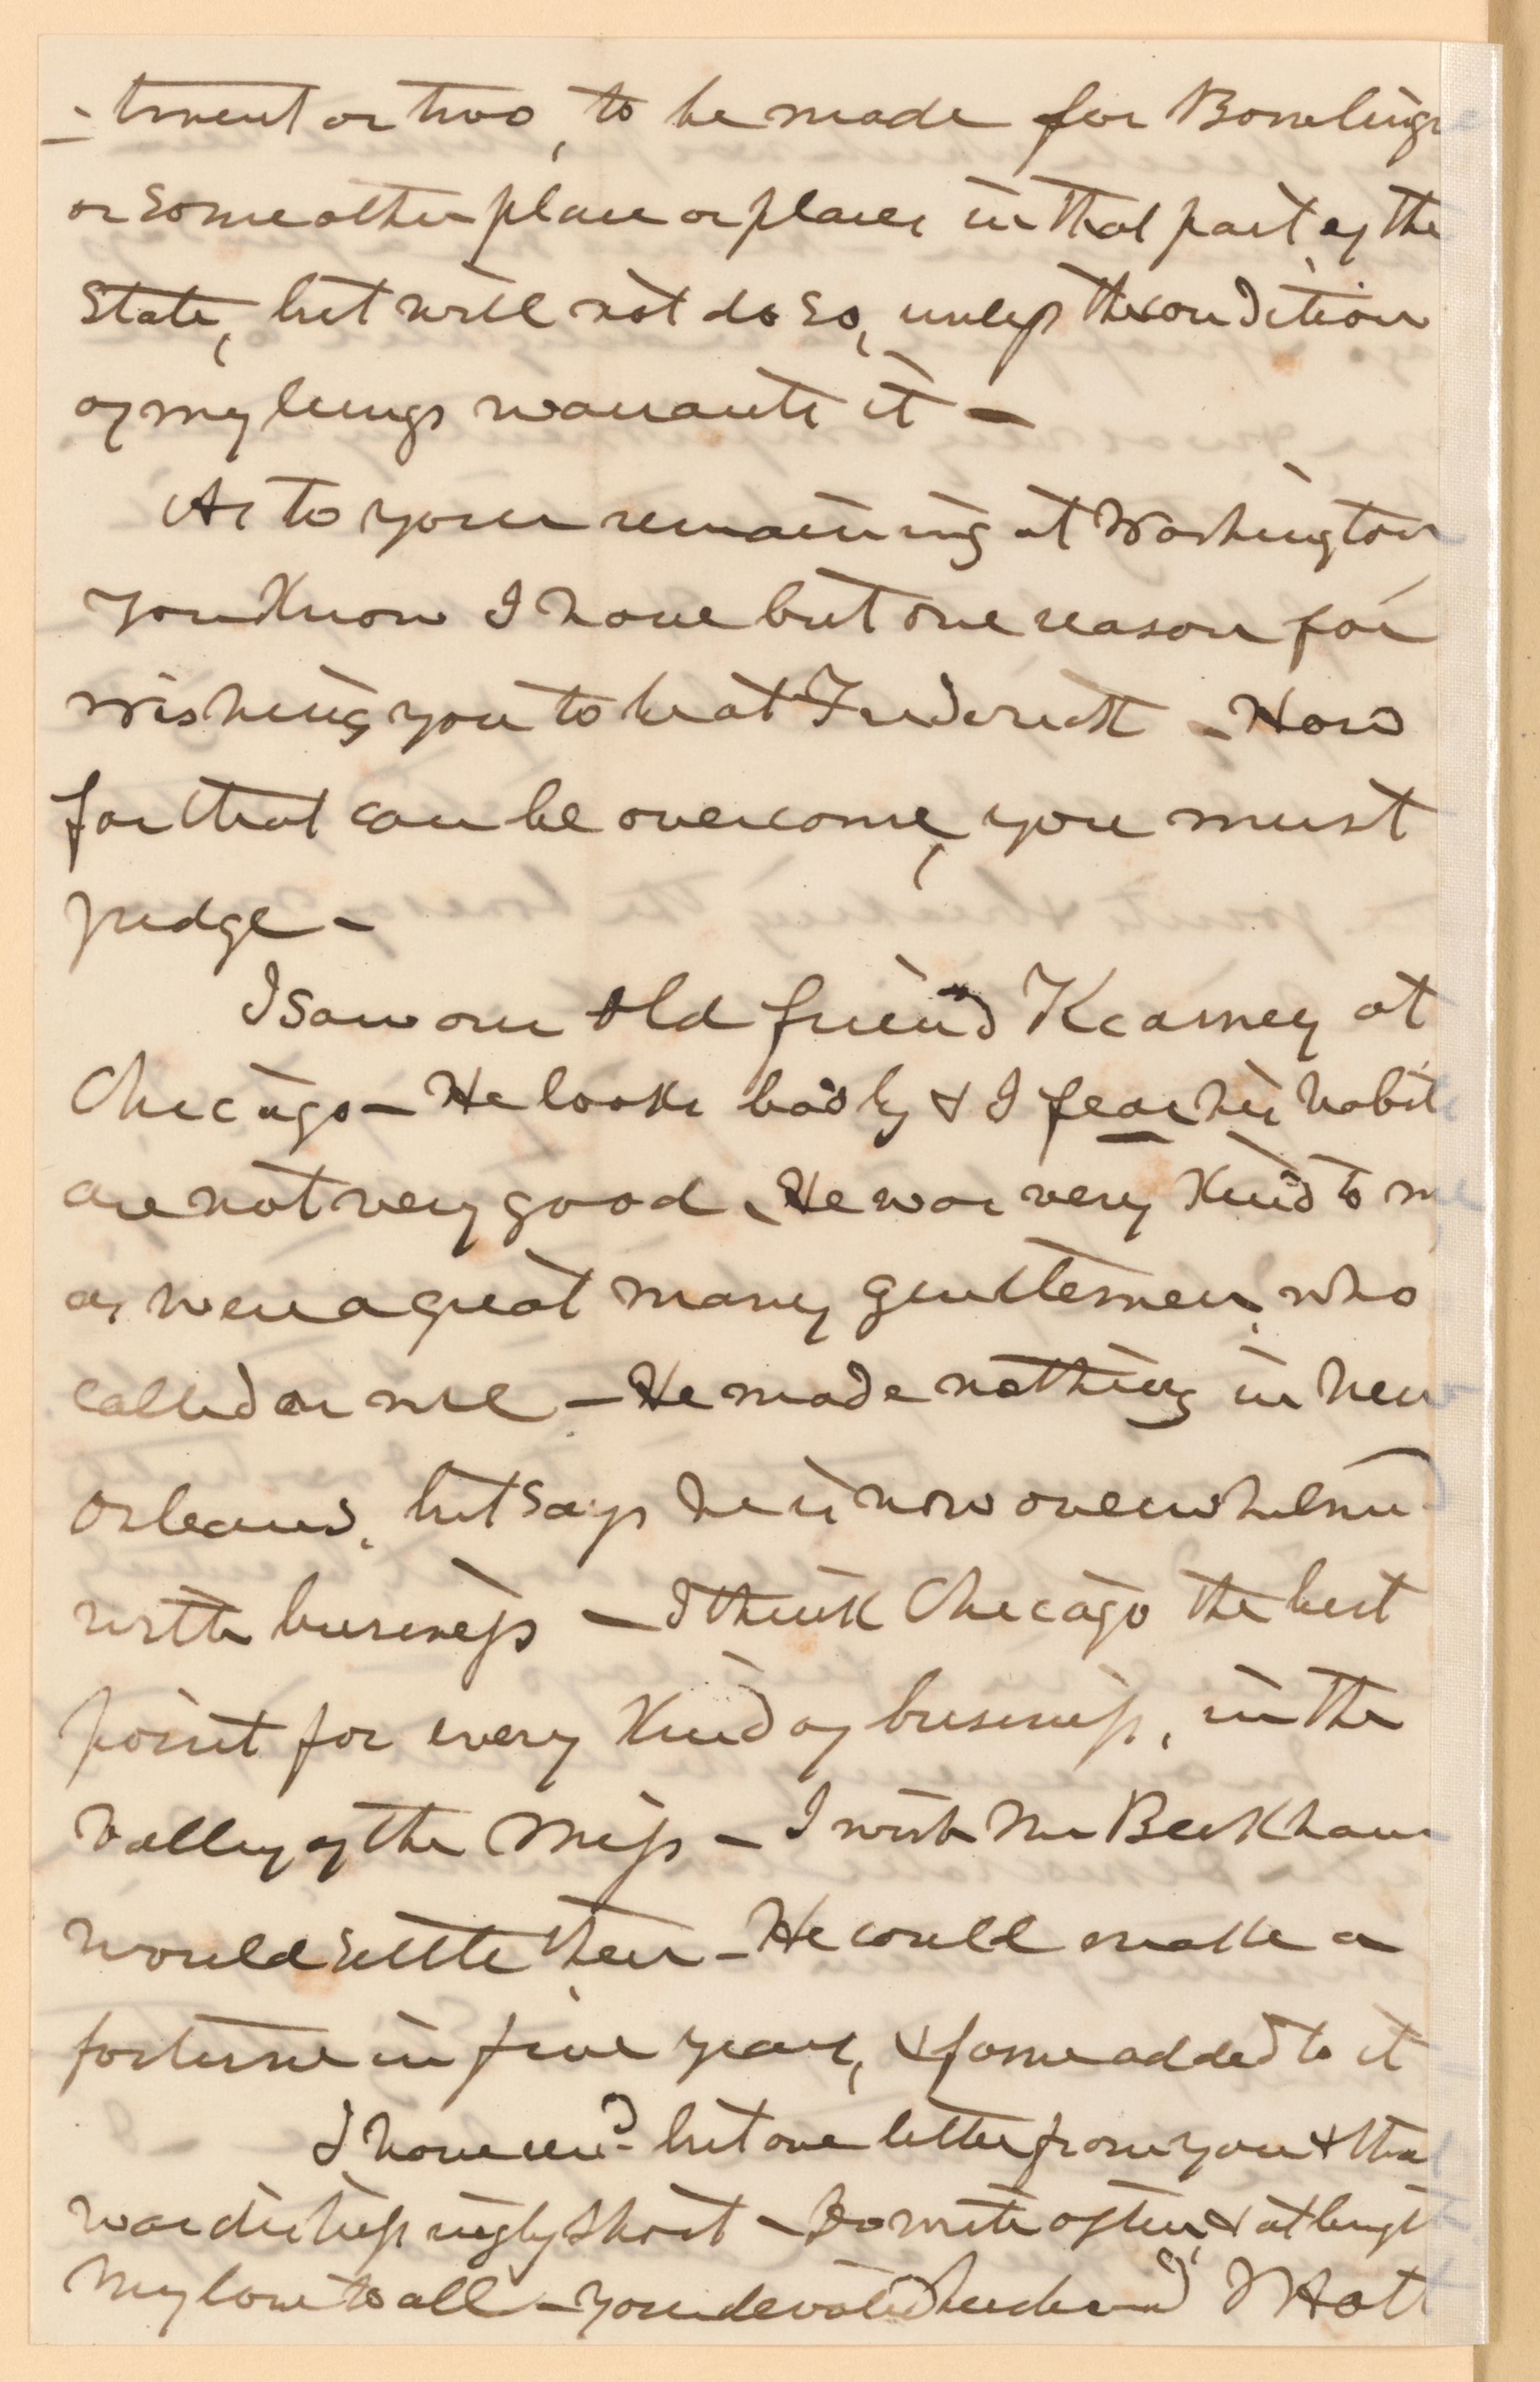 -tment or two, to be made for Bowling
or some other place or places in that part of the
State, but will not do so, unless the condition
of my lungs warrants it –
As to your remaining at Washington
you know I have but one reason for
wishing you to be at Frederick – How
far that can be overcome, you must
judge –
I saw our old friend Kearney at
Chicago – He looks badly & I fear his habits
are not very good. He was very kind to me
as were a great many gentlemen, who
called on me – He made nothing in New
Orleans, but says he is now overwhelmed
with business – I think Chicago the best
point for every kind of business, in the
valley of the Miss – I wish Mr Beckham
would settle there – He could make a
fortune in five years, & fame added to it
I have recd but one letter from you & that
was distressingly short – Do write often, & at length
My love to all – Your devoted husband J Holt